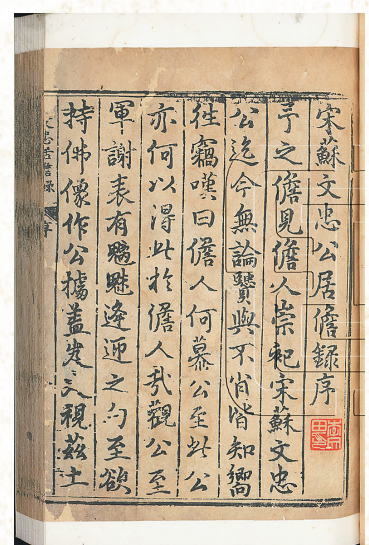 宋蘇文忠公居儋錄序
予之儋見儋人崇祀宋蘇文忠
公迄今無論賢與不肖皆知嚮
徃竊嘆曰儋人何慕公至此公
亦何以得此於儋人哉觀公至
軍謝表有鵩魅逄迎之句至欲
持佛像作公據蓋岌〻乂視茲土